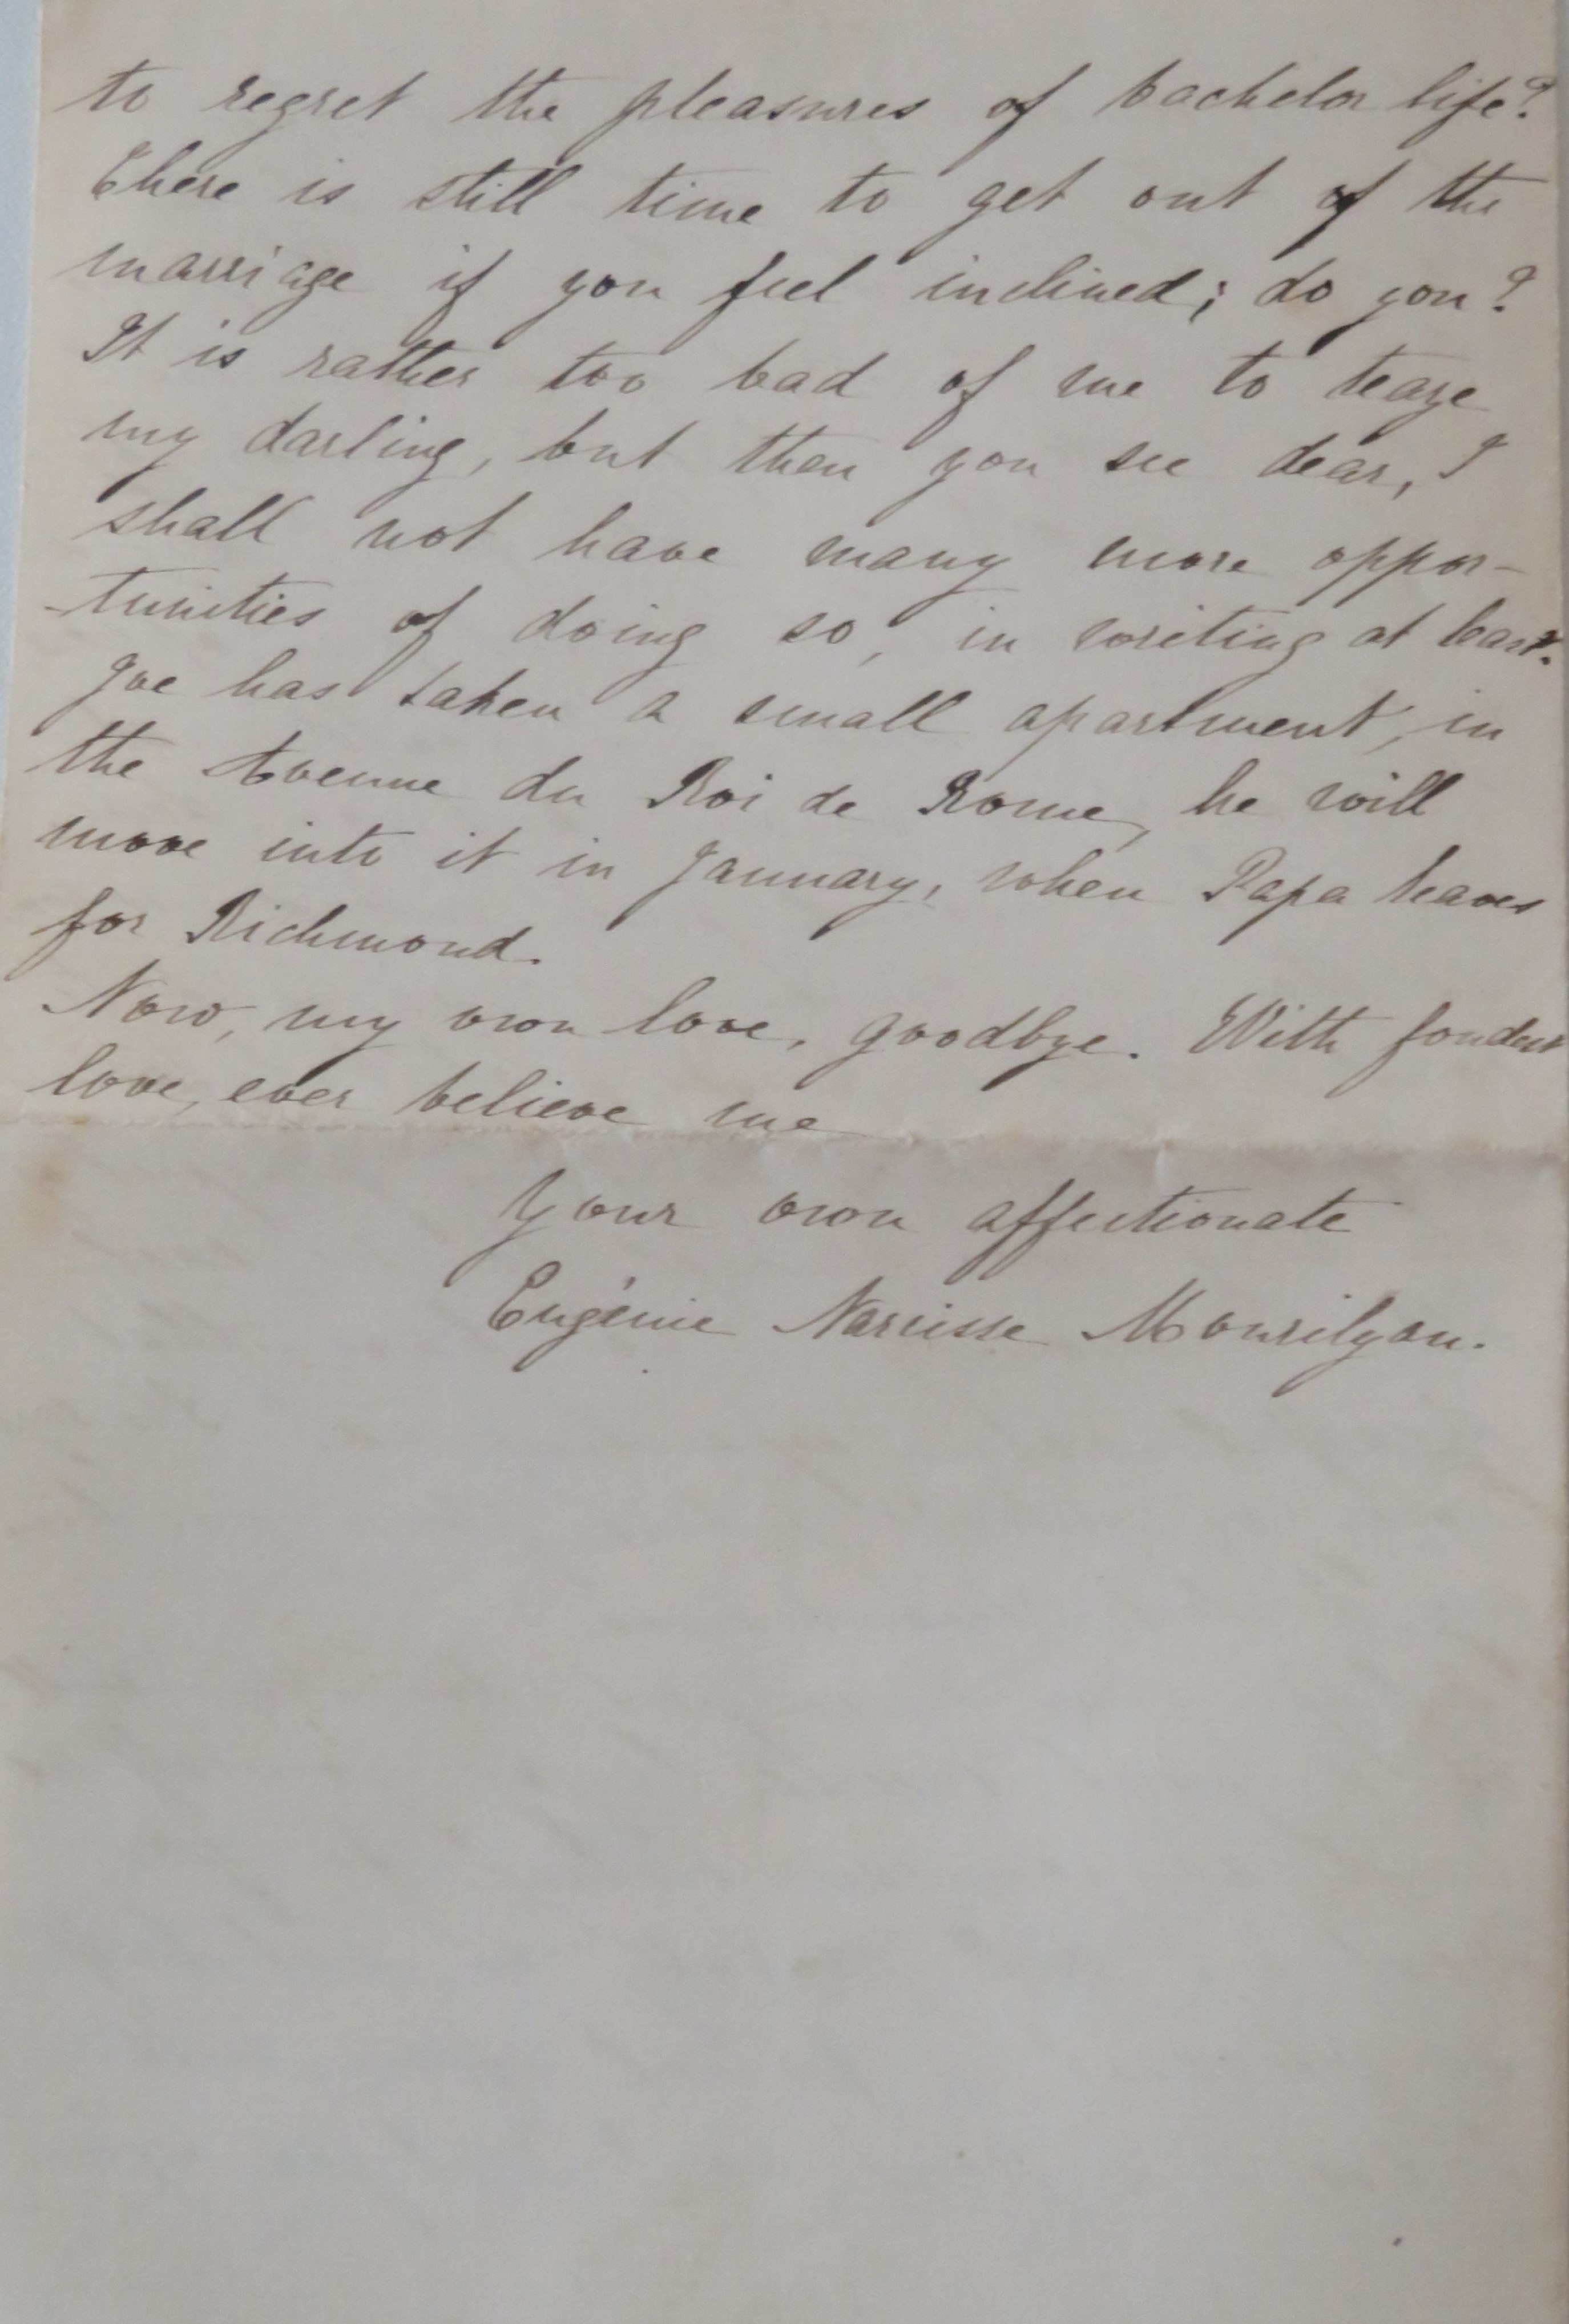 to regret the pleasures of bachelor life?
There is still time to get out of the
marriage if you feel inclined; do you?
It is rather too bad of me to teaze
my darling, but then you see dear, I
shall not have many more oppor-
-tunities of doing so, in writing at least.
Joe has taken a small apartment, in
the Avenue du Roi de Rome, he will
move into it in January, when Papa leaves
for Richmond.
Now, my own love, goodbye. With fondest
love, ever believe me
Your own affectionate
Eugénie Narcisse Mourilyan.